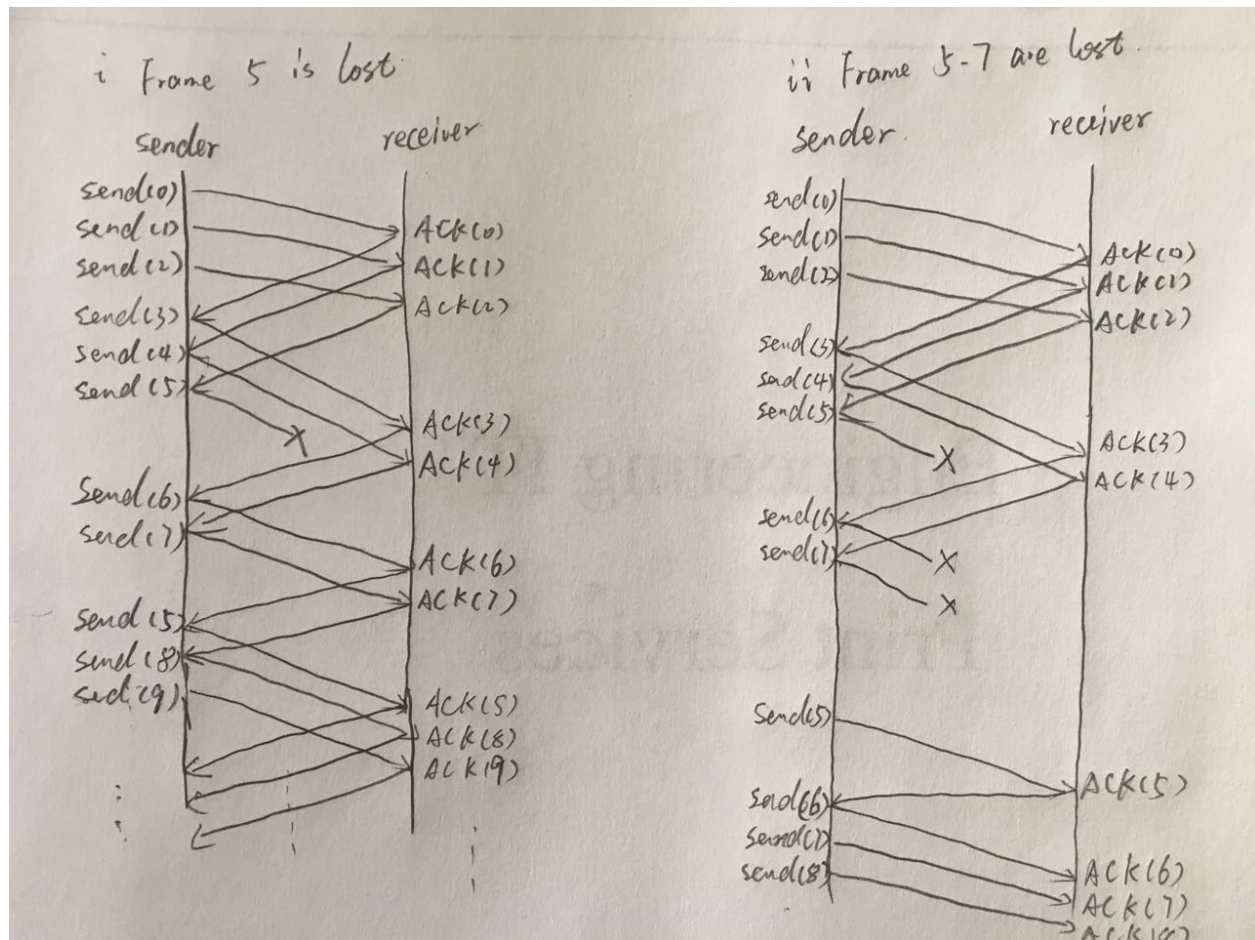 i Frame 5 is lost.
sender receiver
send(0)
send(1)
send(2)
send(3)
send(4)
send(5)
send(6)
send(7)
send(5)
send(8)
sed(9)
ACK(0)
ACK(1)
ACK(2)
ACK(3)
ACK(4)
X
ACK(6)
ACK(7)
ACK(5)
ACK(8)
ACK(9)
ii Frame 5-7 are lost.
sender. receiver
send(0)
send(1)
send(2)
send(3)
send(4)
send(5)
send(6)
send(7)
Send(5)
send(6)
send(7)
send(8)
ACK(0)
ACK(1)
ACK(2)
ACK(3)
ACK(4)
X
X
X
ACK(5)
ACK(6)
ACK(7)
ACK(8)
Engineering IT
Print Services